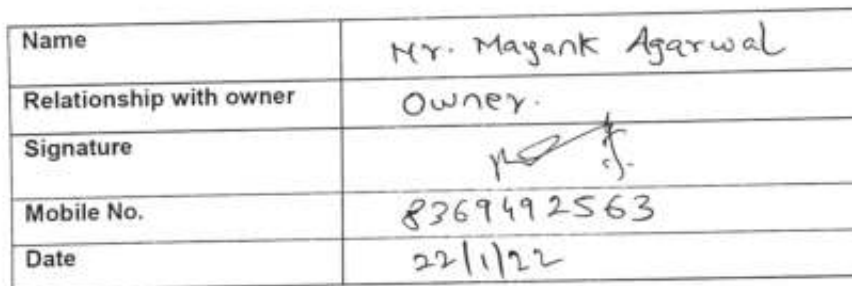 Name Mr. Mayank Agarwal
Relationship with owner Owner.
Signature
Mobile No. 8369492563
Date 22/1/22